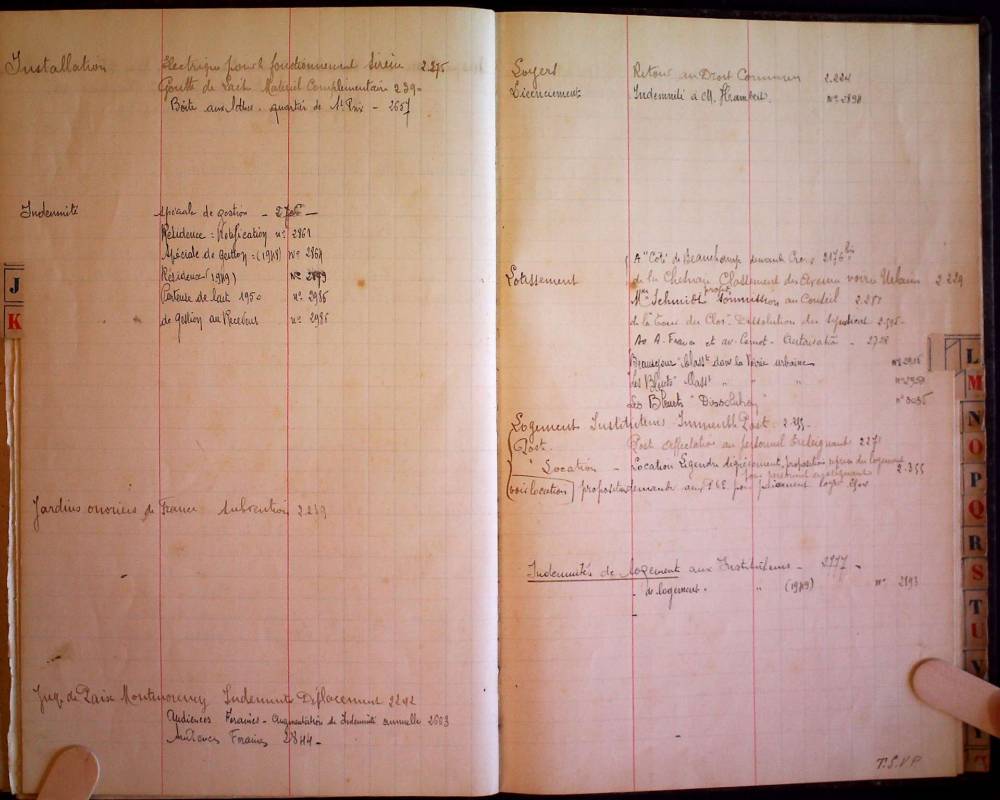 Installation Electrique pour le fonctionnement Sirène 2.275
Goutte de Lait Matériel Complémentaire 239-
Boîte aux lettres quartier de St Prix - 2657
Indemnité Spéciale de gestion -
Résidence = Notification n° 2861
Spéciale de gestion = (1948) N° 2864
Résidence (1949) N° 2879
Porteuse de lait 1950 n° 2986
de gestion au Receveur n° 2986
J
K
Jardins ouvriers de France Subvention 2.239
Juge de Paix Montmorency Indemnité Déplacement 2242
Audiences Foraines - Augmentation de Indemnité annuelle 2663
Audiences Foraines 2844 -
Loyers Retour au Droit Commun 2.224
Licenciement Indemnité à M. N° 2890
A "Coté de Beauchamp 2176 bis
Lotissement de la Chesnau Classement du voirie Urbaine 2 229
Schmidt Soumission au Conseil 2.251
de la Tour du Clos - Dissolution du Syndicat 2.595-
Av A. France et av. Carnot - Autorisation - 2728
Beauséjour" Classt dans la Voirie urbaine
"Les Bleuets" Classt " " "
Les Bleuets "Dissolution" N° 3035
Logement Instituteurs Immeuble Post 2.255-
Post. Post affectation au personnel Enseignant 2271
" Location - Location Legendre dégrèvement, proposition reprise du logement 2.355
pour personnel enseignant
(voir location) proposition demande aux P.T.T. pour paiement loyer
Indemnités de logement aux Instituteurs - 2777 -
- de logement. " (1949) n° 2893
-
T.S.V.P.
L
M
N
O
P
Q
R
S
T
U
V